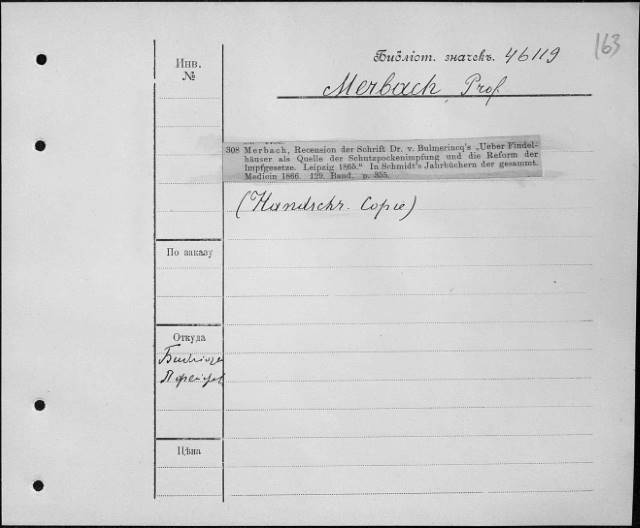 163
Инв.
№
Библіот. значекъ. 46119
Merbach, Prof.
308 Merbach, Recension der Schrift Dr. v. Bulmerincq's „Ueber Findel-
häuser als Quelle der Schutzpockenimpfung und die Reform der
Impfgesetze. Leipzig 1865.“ In Schmidt's Jahrbüchern der gesammt.
Medicin 1866. 129. Band, p. 355.
(Handschr. Copie)
По заказу
Откуда
Цѣна